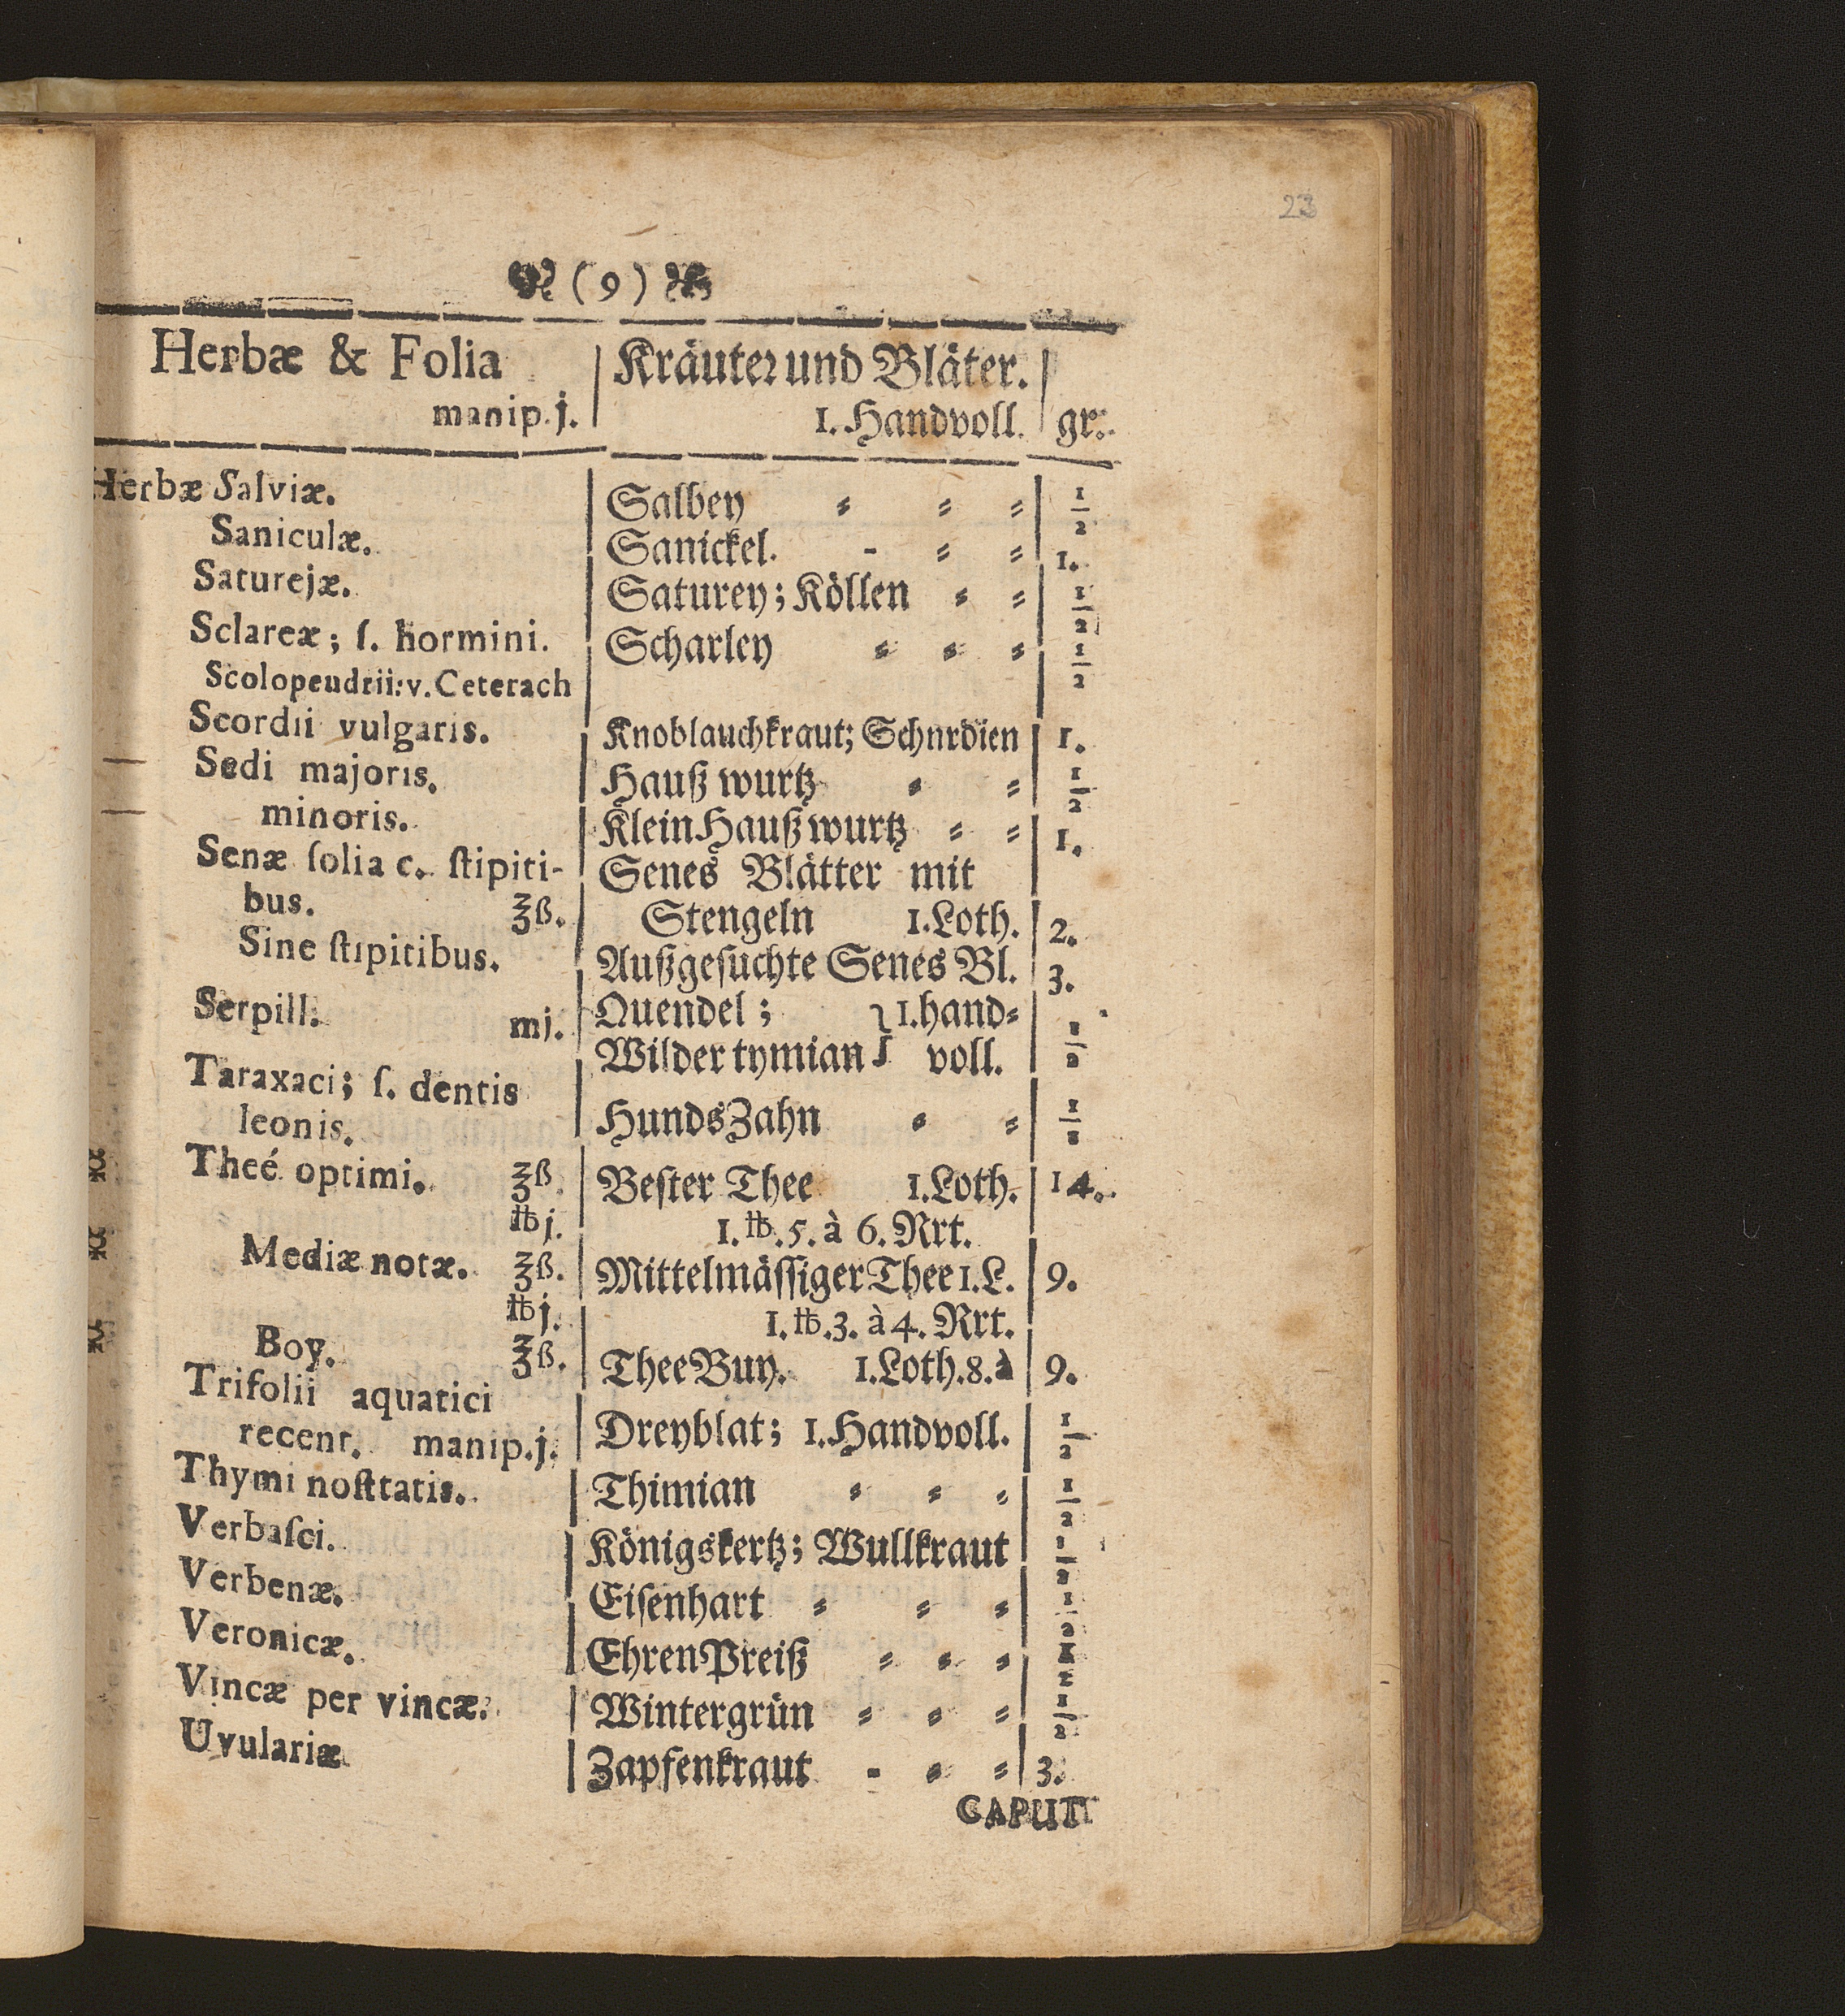 23
( 9 )
Herbæ & Folia | Kräuter und Bläter.
manip. j. | 1. Handvoll. | gr:
Herbæ Salviæ. | Salbey ⸗ ⸗ ⸗ | 1/2
Saniculæ. | Sanickel. - ⸗ ⸗ | 1.
Saturejæ. | Saturey; Köllen ⸗ ⸗ | 1/2
Sclareæ; ſ. hormini. | Scharley ⸗ ⸗ ⸗ | 1/2
Scolopeudrii: v. Ceterach
Scordii vulgaris. | Knoblauchkraut; Schnrdien | 1.
— Sedi majoris. | Hauß wurtz ⸗ ⸗ | 1/2
— minoris. | Klein Hauß wurtz ⸗ ⸗ | 1.
Senæ ſolia c. ſtipiti- | Senes Blätter mit
bus. ℥ß. | Stengeln 1. Loth. | 2.
Sine ſtipitibus. | Außgeſuchte Senes Bl. | 3.
Serpill. mj. | Quendel; } 1. hand⸗
Wilder tymian } voll. | 1/2
Taraxaci; ſ. dentis
leonis. | HundsZahn ⸗ ⸗ | 1/2
Theé optimi. ℥ß. | Beſter Thee 1. Loth. | 14.
℔j. | 1. ℔. 5. à 6. Rrt.
Mediæ notæ. ℥ß. | Mittelmäſſiger Thee 1. L. | 9.
℔j. | 1. ℔. 3. à 4. Rrt.
Boy. ℥ß. | Thee Buy. 1. Loth. 8. à | 9.
Trifolii aquatici
recent. manip. j. | Dreyblat; 1. Handvoll. | 1/2
Thymi noſttatis. | Thimian ⸗ ⸗ ⸗ | 1/2
Verbaſci. | Königskertz; Wullkraut | 1/2
Verbenæ. | Eiſenhart ⸗ ⸗ ⸗ | 1/2
Veronicæ. | EhrenPreiß ⸗ ⸗ ⸗ | 1/2
Vincæ per vincæ. | Wintergrün ⸗ ⸗ ⸗ | 1/2
Uvulariæ | Zapfenkraut - ⸗ ⸗ | 3.
CAPUT